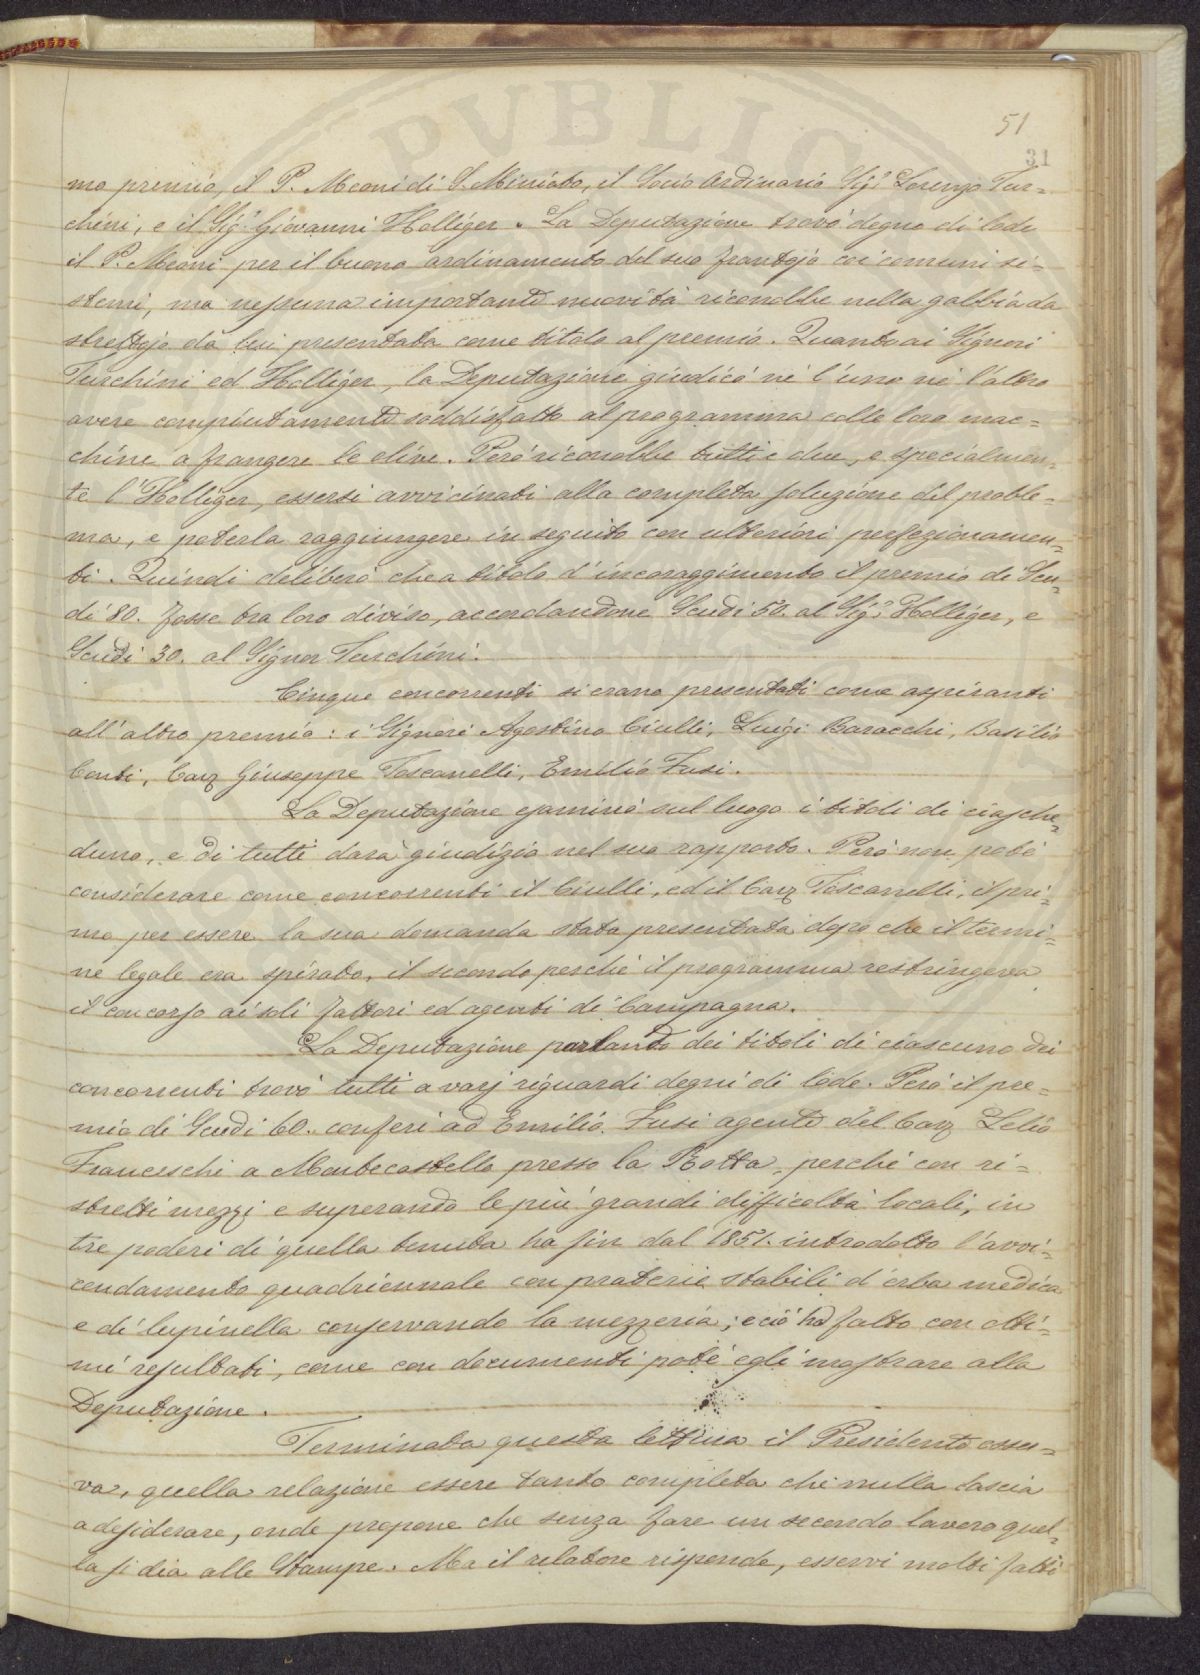 51
31
mo premio, il P. Meoni di S. Miniato, il Socio Ordinario Sig.r Lorenzo Tur=
chini, e il Sig.r Giovanni Holliger. La Deputazione trovò degno di lode
il P. Meoni per il buono ordinamento del suo frantojo coi comuni si=
stemi, ma nessuna importante novità riconobbe nella gabbia da
strettojo da lui presentata come titolo al premio. Quanto ai Signori
Turchini ed Holliger, la Deputazione giudicò nè l'uno nè l'altro
avere compiutamente soddisfatto al programma colle loro mac=
chine a frangere le olive. Però riconobbe tutti e due, e specialmen=
te l'Holliger, essersi avvicinati alla completa soluzione del proble=
ma, e poterla raggiungere in seguito con ulteriori perfezionamen=
ti. Quindi deliberò che a titolo d'incoraggimento il premio di Scu=
di 80. fosse tra loro diviso, accordandone Scudi 50. al Sig.r Holliger, e
Scudi 30. al Signor Turchini.
Cinque concorrenti si erano presentati come aspiranti
all'altro premio: i Signori Agostino Ciulli, Luigi Baracchi, Basilio
Conti, Cav Giuseppe Toscanelli, Emilio Fusi.
La Deputazione esaminò sul luogo i titoli di ciasche=
duno, e di tutti darà giudizio nel suo rapporto. Però non potè
considerare come concorrenti il Ciulli, ed il Cav Toscanelli, il pri=
mo per essere la sua domanda stata presentata dopo che il termi=
ne legale era spirato, il secondo perchè il programma restringeva
il concorso ai soli fattori ed agenti di Campagna.
La Deputazione parlando dei titoli di ciascuno dei
concorrenti trovò tutti a varj riguardi degni di lode. Però il pre=
mio di Scudi 60. conferì ad Emilio Fusi agente del Cav Lelio
Franceschi a Montecastello presso la Rotta, perchè con ri=
stretti mezzi e superando le più grandi difficoltà locali, in
tre poderi di quella tenuta ha fin dal 1851. introdotto l'avvi=
cendamento quadriennale con praterie stabili d'erba medica
e di lupinella conservando la mezzeria; e ciò ha fatto con otti=
mi resultati, come con documenti potè egli mostrare alla
Deputazione.
Terminata questa lettura il Presidente osser=
va, quella relazione essere tanto completa che nulla lascia
a desiderare, onde propone che senza fare un secondo lavoro quel=
la si dia alle Stampe. Ma il relatore risponde, esservi molti fatti